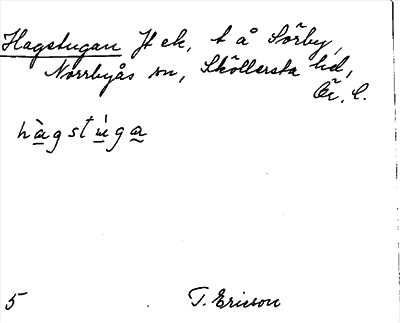 Hagstugan Jt ek, t å Sörby,
Norrbyås sn, Sköllersta hd,
Ör. l.
hàgstùga
5 T. Ericson